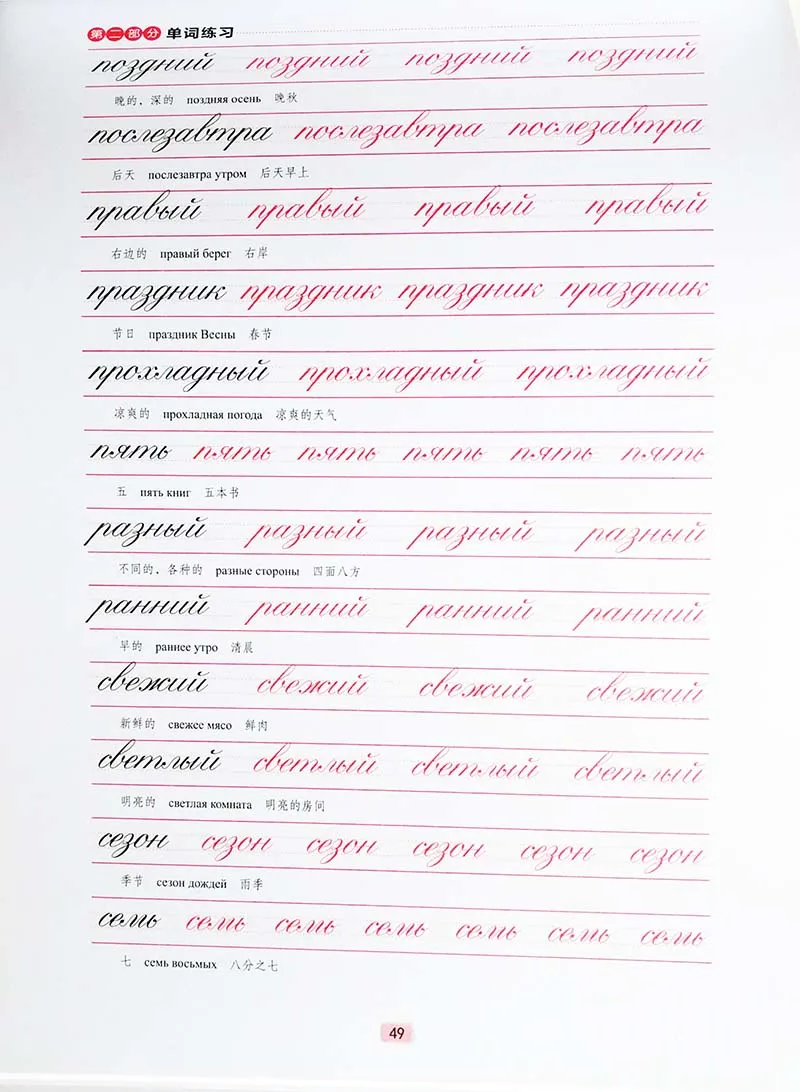 第二部分 单词练习
поздний поздний поздний поздний
晚的，深的 поздняя осень 晚秋
послезавтра послезавтра послезавтра
后天 послезавтра утром 后天早上
правый правый правый правый
右边的 правый берег 右岸
праздник праздник праздник праздник
节日 праздник Весны 春节
прохладный прохладный прохладный
凉爽的 прохладная погода 凉爽的天气
пять пять пять пять пять пять
五 пять книг 五本书
разный разный разный разный
不同的，各种的 разные стороны 四面八方
ранний ранний ранний ранний
早的 раннее утро 清晨
свежий свежий свежий свежий
新鲜的 свежее мясо 鲜肉
светлый светлый светлый светлый
明亮的 светлая комната 明亮的房间
сезон сезон сезон сезон сезон сезон
季节 сезон дождей 雨季
семь семь семь семь семь семь семь
七 семь восьмых 八分之七
49